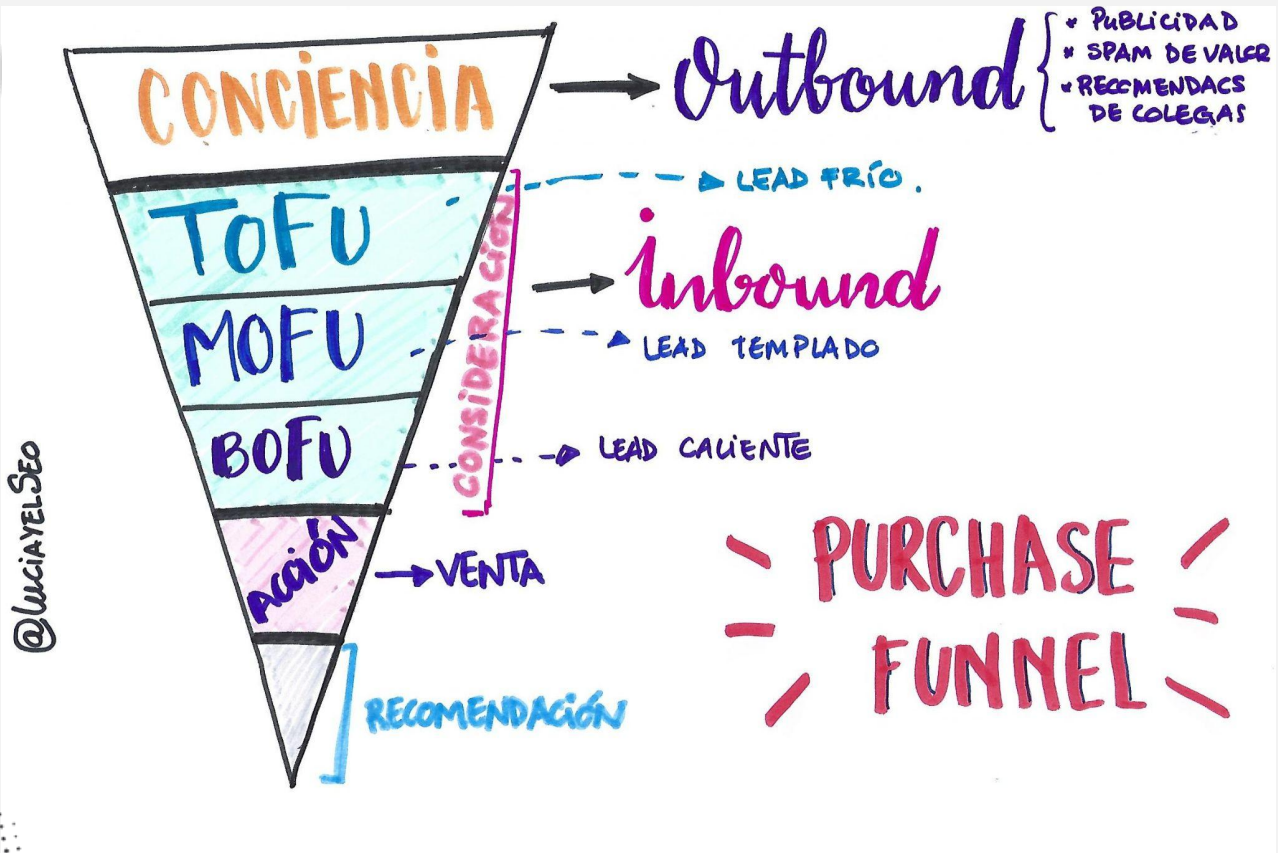 CONCIENCIA
Outbound
* PUBLICIDAD
* SPAM DE VALOR
* RECOMENDACS
DE COLEGAS
TOFU
LEAD FRÍO.
CONSIDERACIÓN
inbound
MOFU
LEAD TEMPLADO
BOFU
LEAD CALIENTE
ACCIÓN
VENTA
RECOMENDACIÓN
PURCHASE
FUNNEL
@LUCIAYELSEO